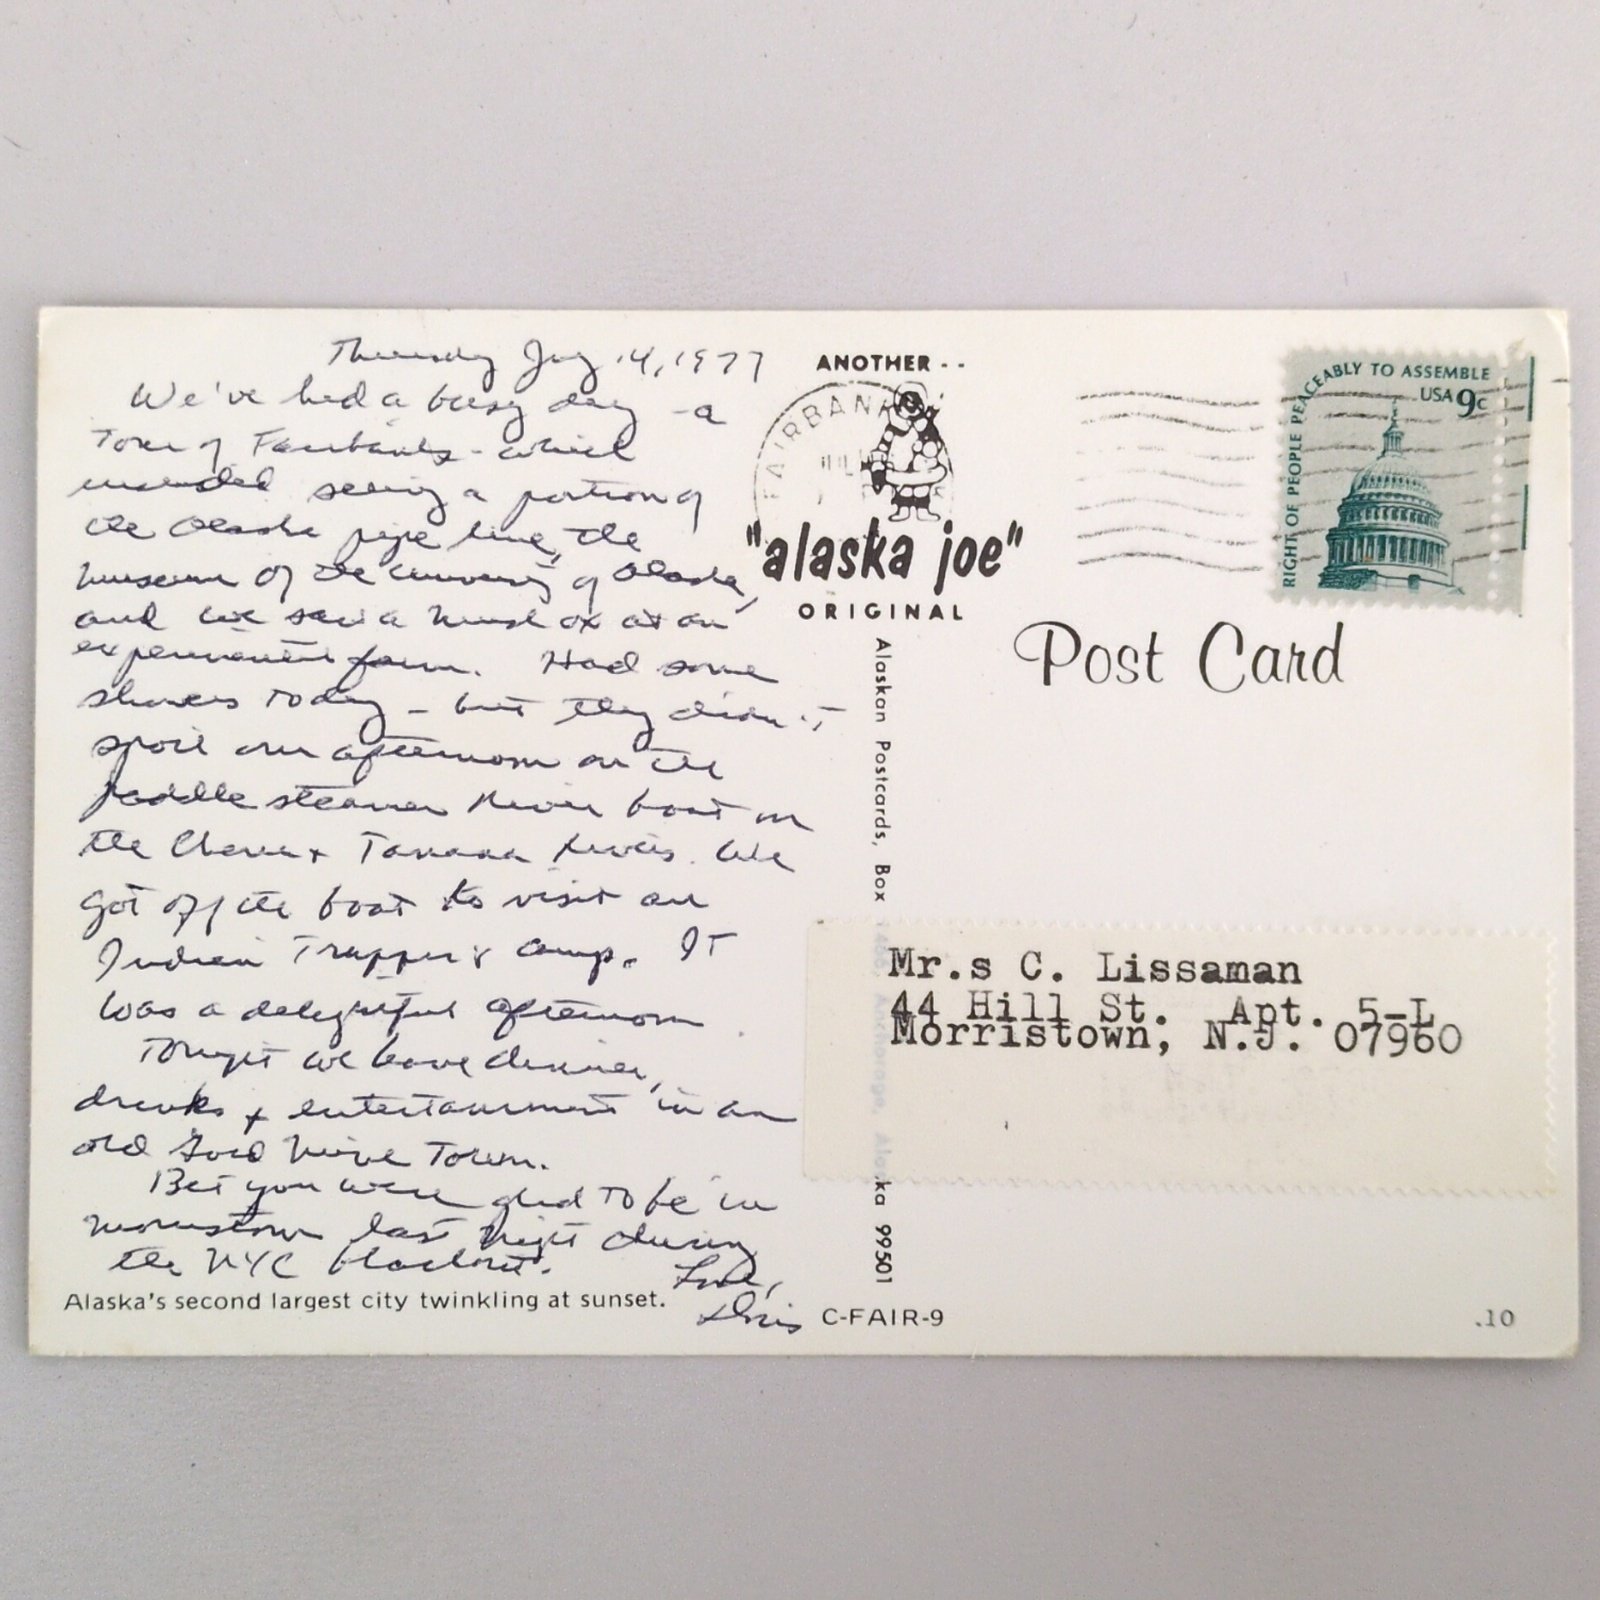 Thursday July 14, 1977
We've had a busy day - a
Tour of Fairbanks - which
included seeing a portion of
the Alaska pipe line, the
museum of the University of Alaska,
and we saw a musk ox at an
experimental farm. Had some
showers today - but they didn't
spoil our afternoon on the
paddle steamer River boat on
the Chena + Tanana Rivers. We
got off the boat to visit an
Indian Trapper's camp. It
was a delightful afternoon
Tonight we have dinner,
drinks + entertainment in an
old Gold Mine Town.
Bet you were glad to be in
Morristown last night during
the NYC blackout.
Love,
Doris
Alaska's second largest city twinkling at sunset.
ANOTHER--
FAIRBANKS
"alaska joe"
ORIGINAL
Alaskan Postcards, Box Anchorage, Alaska 99501
C-FAIR-9
RIGHT OF PEOPLE PEACEABLY TO ASSEMBLE
USA 9c
Post Card
Mr.s C. Lissaman
44 Hill St. Apt. 5-L
Morristown, N.J. 07960
.10